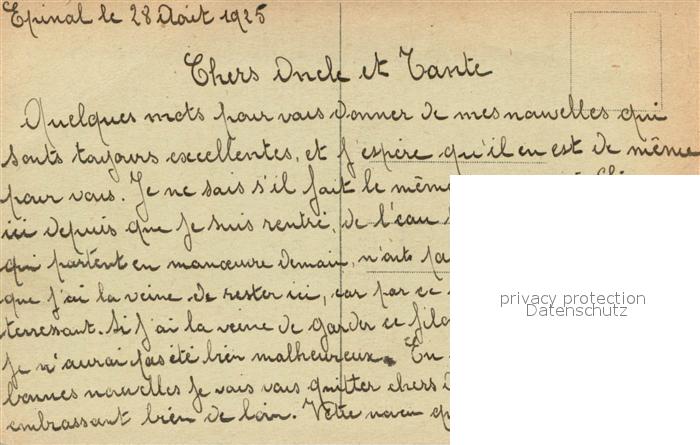 Epinal le 28 Août 1925
Chers Oncle et Tante
Quelques mots pour vous donner de mes nouvelles qui
sonts toujours excellentes, et j'espère qu'il en est de même
pour vous. Je ne sais s'il fait le même
ici depuis que je suis rentré, de l'eau
qui partent en manœuvre demain, n'onts pas
que j'ai la veine de rester ici, car par ce
terressant. Si j'ai la veine de garder ce filon
je n'aurai pas été bien malheureux. En
bonnes nouvelles je vais vous quitter chers
embrassant bien de loin. Votre neveu
privacy protection
Datenschutz